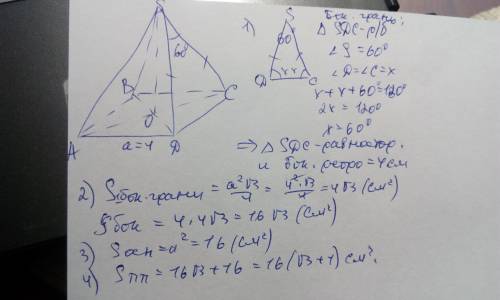 S
60°
B
C
O
A
D
a=4
1)
S
60°
D
x x
C
Бок. грань:
△ SDC - р/б
∠S = 60°
∠D = ∠C = x
x + x + 60° = 120°
2x = 120°
x = 60°
⇒ △ SDC - равностор.
и бок. ребро = 4 см
2) Sбок. грани = a²√3/4 = 4²·√3/4 = 4√3 (см²)
Sбок = 4·4√3 = 16√3 (см²)
3) Sосн = a² = 16 (см²)
4) Sпп = 16√3 + 16 = 16(√3 + 1) см².